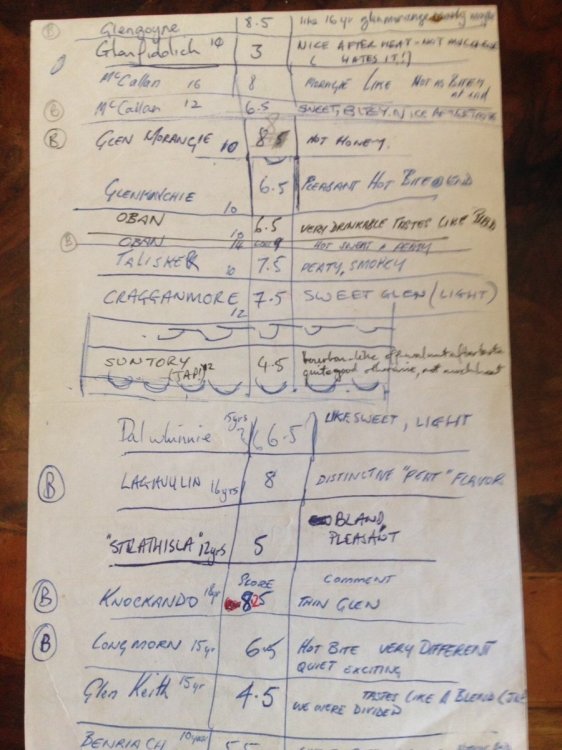 B Glengoyne 8.5 like 16 yr glenmorange
Glenfiddich 10 3 NICE AFTER HEAT - NOT MUCH
( HATES IT!)
McCallan 16 8 MORANGIE LIKE NOT AS BITEY
at end
B McCallan 12 6.5 SWEET, BITEY. NICE AFTERTASTE
B GLEN MORANGIE 10 8.5 HOT HONEY.
GLENKINCHIE 10 6.5 PLEASANT HOT BITE @ END
OBAN 10 6.5 VERY DRINKABLE TASTES LIKE
B OBAN 14 HOT SWEAT & PEATY
TALISKER 10 7.5 PEATY, SMOKEY
CRAGGANMORE 12 7.5 SWEET GLEN (LIGHT)
SUNTORY (JAP) 12 4.5 bourbon-like aftertaste
quite good otherwise, not much heat
Dalwhinnie 15yrs 6.5 LIKE SWEET, LIGHT
B LAGAVULIN 16yrs 8 DISTINCTIVE "PEAT" FLAVOR
"STRATHISLA" 12yrs 5 BLAND,
PLEASANT
SCORE COMMENT
B KNOCKANDO 18yr 8.25 THIN GLEN
B LONGMORN 15yr 6.5 HOT BITE VERY DIFFERENT
QUIET EXCITING
Glen Keith 15yr 4.5 TASTES LIKE A BLEND
WE WERE DIVIDED
BENRIACH 10 year 5.5